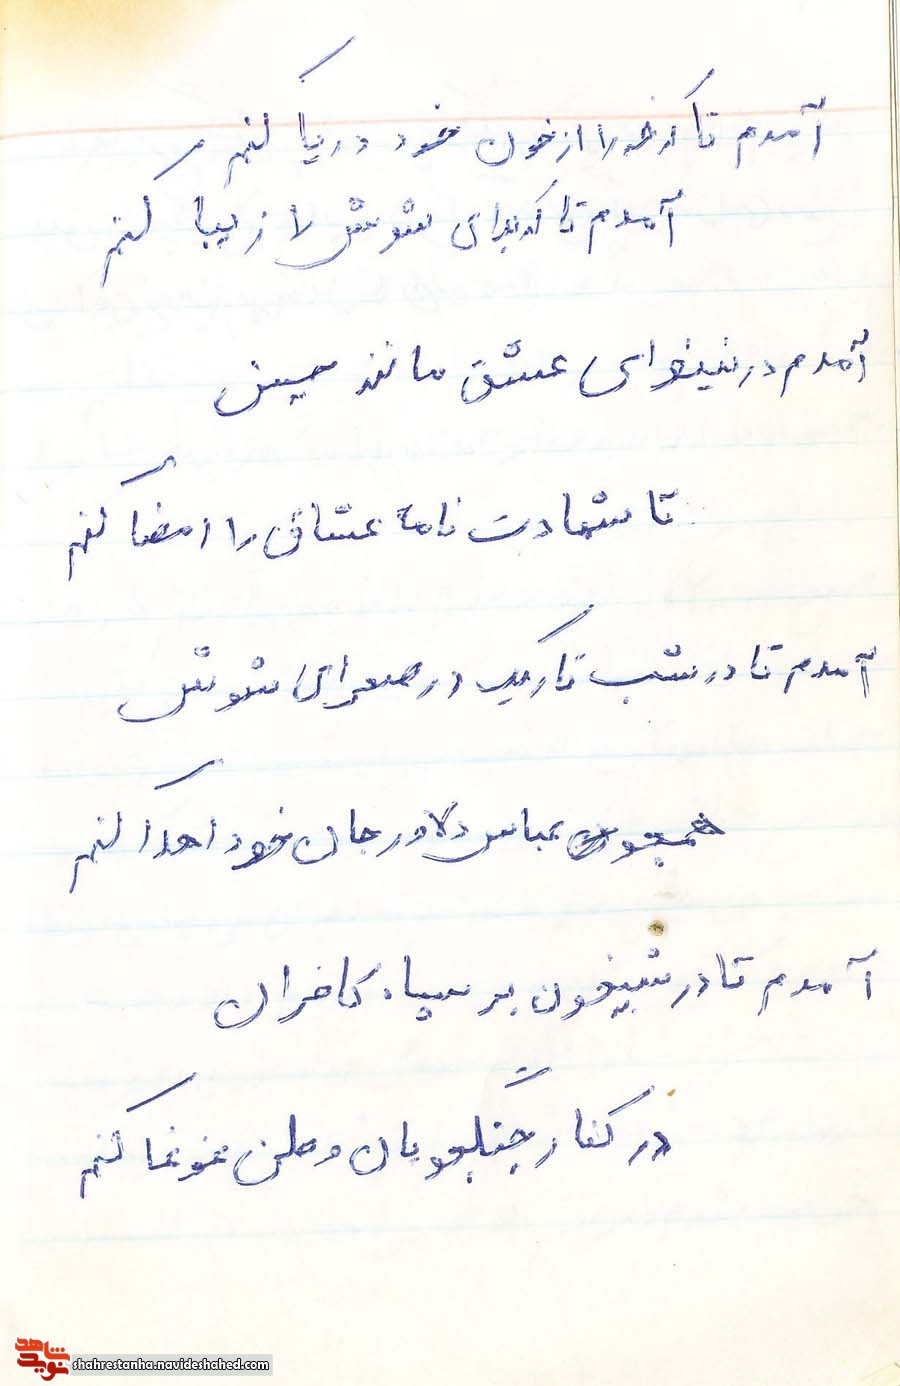 آمدم تا کرخه را از خون خود دریا کنم
آمدم تا کربلای شوش را زیبا کنم
آمدم در نینوای عشق مانند حسین
تا شهادت نامهٔ عشاق را امضا کنم
آمدم تا در شب تاریک در صحرای شوش
همچون عباس دلاور جان خود اهدا کنم
آمدم تا در شبیخون بر سپاه کافران
در کنار جنگجویان وطن غوغا کنم
نوید شاهد
shahrestanha.navideshahed.com